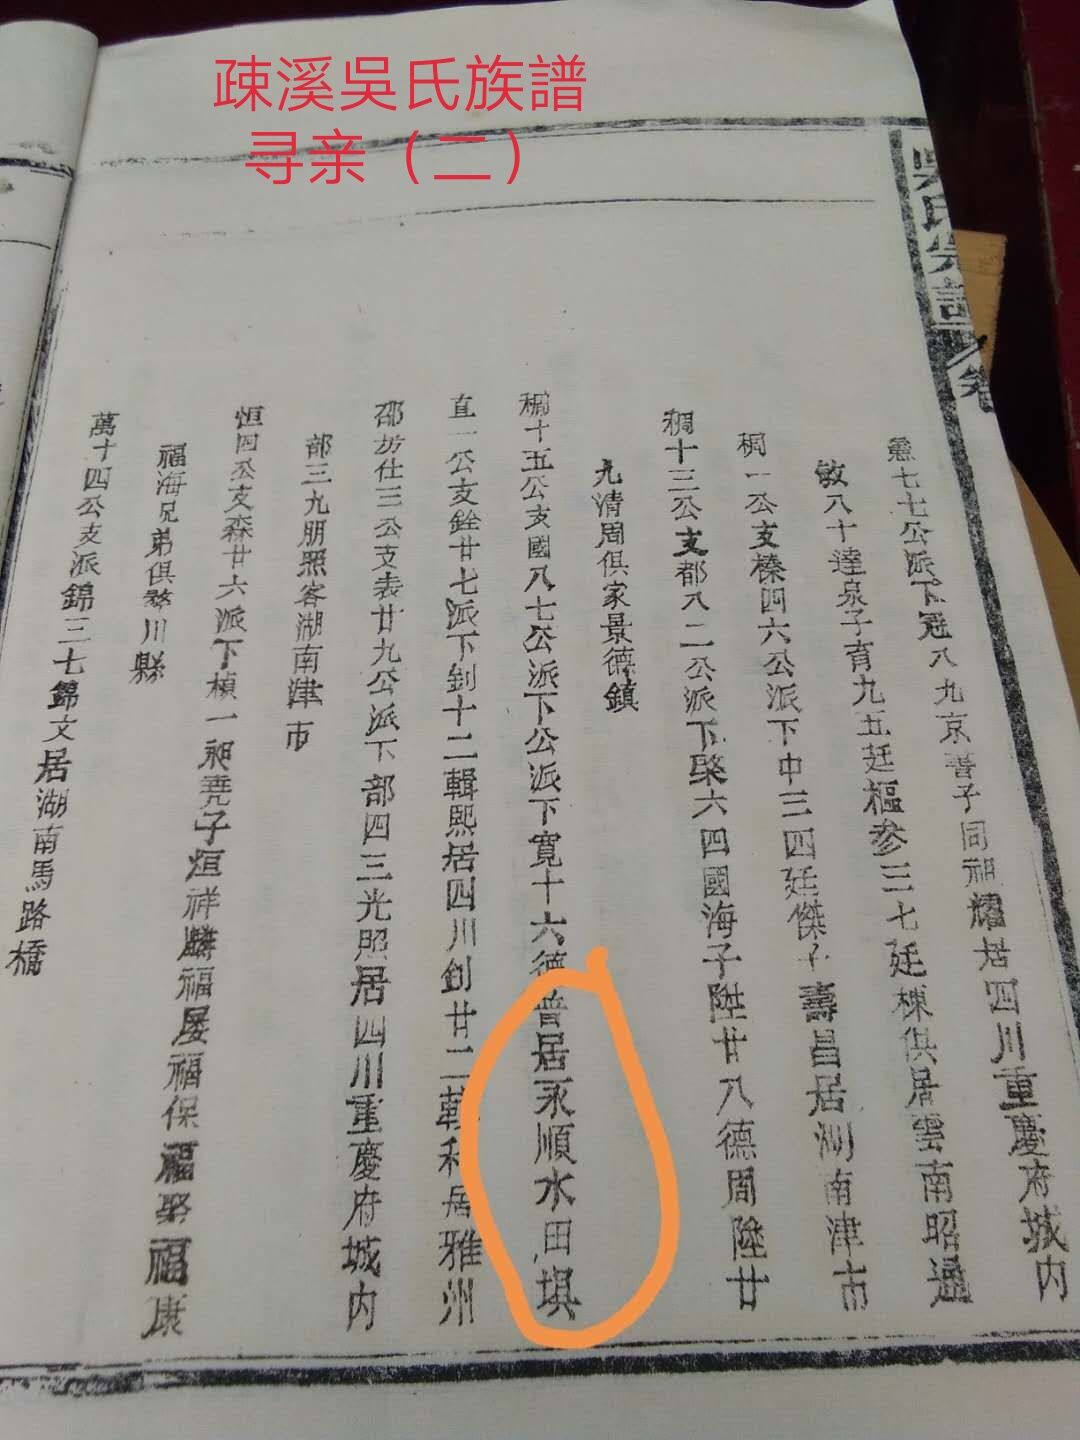 疎溪吳氏族譜
寻亲（二）
吳氏宗譜 卷
七七公派下冠八九京普子同祖耀居四川重慶府城内
敏八十達泉子育九五廷樞参三七廷棟俱居雲南昭通
稠一公支榛四六公派下中三四廷傑子壽昌居湖南津市
稠十三公支都八二公派下棨六四國海子陞廿八德周陞廿
九清周俱家景德鎮
稠十五公支國八七公派下公派下寬十六德普居永順水田埧
直一公支銓廿七派下釗十二輯熙居四川釗廿二 利居雅州
邵坊仕三公支表廿九公派下部四三光照居四川重慶府城内
部三九朋照客湖南津市
恒四公支森廿六派下楨一昶尭子烜祥麟福屡福保福聚福康
福海兄弟俱 川縣
萬十四公支派錦三七錦文居湖南馬路橋